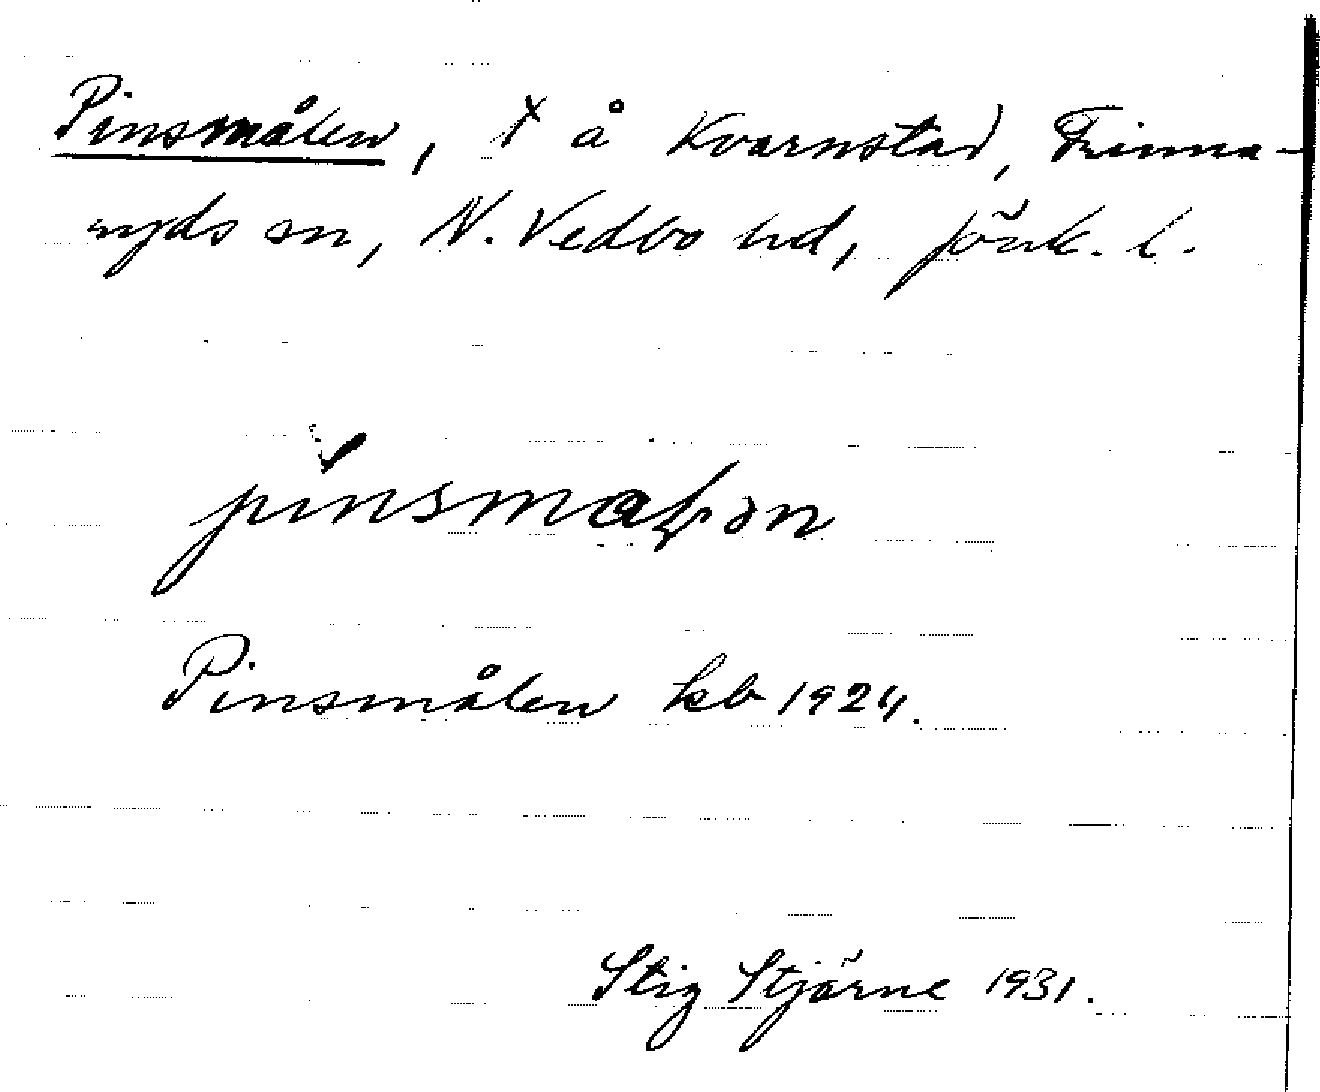 Pinsmålen, x å Kvarnstad, Frinna-
ryds sn, N. Vedbo hd, Jönk. l.
Pinsmålen kb 1924.
Stig Stjärne 1931.